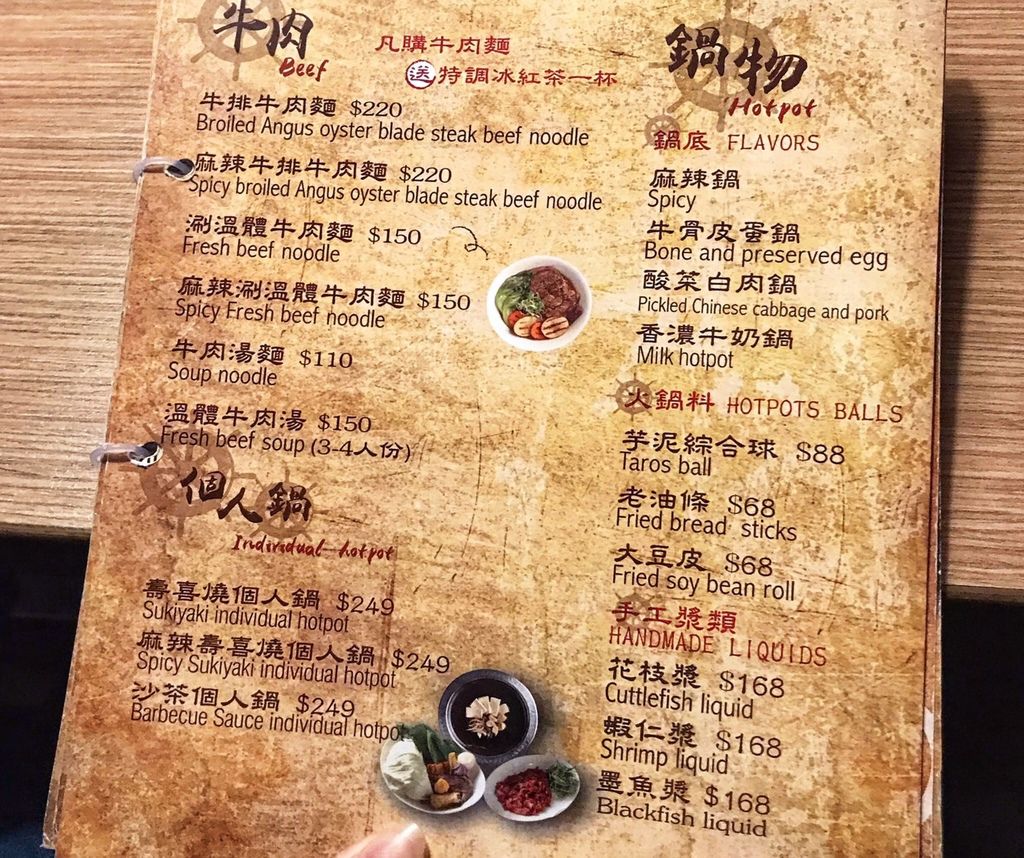 牛肉
Beef
凡購牛肉麵
送特調冰紅茶一杯
牛排牛肉麵 $220
Broiled Angus oyster blade steak beef noodle
麻辣牛排牛肉麵 $220
Spicy broiled Angus oyster blade steak beef noodle
涮溫體牛肉麵 $150
Fresh beef noodle
麻辣涮溫體牛肉麵 $150
Spicy Fresh beef noodle
牛肉湯麵 $110
Soup noodle
溫體牛肉湯 $150
Fresh beef soup (3-4人份)
個人鍋
Individual hotpot
壽喜燒個人鍋 $249
Sukiyaki individual hotpot
麻辣壽喜燒個人鍋 $249
Spicy Sukiyaki individual hotpot
沙茶個人鍋 $249
Barbecue Sauce individual hotpot
鍋物
Hotpot
鍋底 FLAVORS
麻辣鍋
Spicy
牛骨皮蛋鍋
Bone and preserved egg
酸菜白肉鍋
Pickled Chinese cabbage and pork
香濃牛奶鍋
Milk hotpot
火鍋料 HOTPOTS BALLS
芋泥綜合球 $88
Taros ball
老油條 $68
Fried bread sticks
大豆皮 $68
Fried soy bean roll
手工漿類
HANDMADE LIQUIDS
花枝漿 $168
Cuttlefish liquid
蝦仁漿 $168
Shrimp liquid
墨魚漿 $168
Blackfish liquid